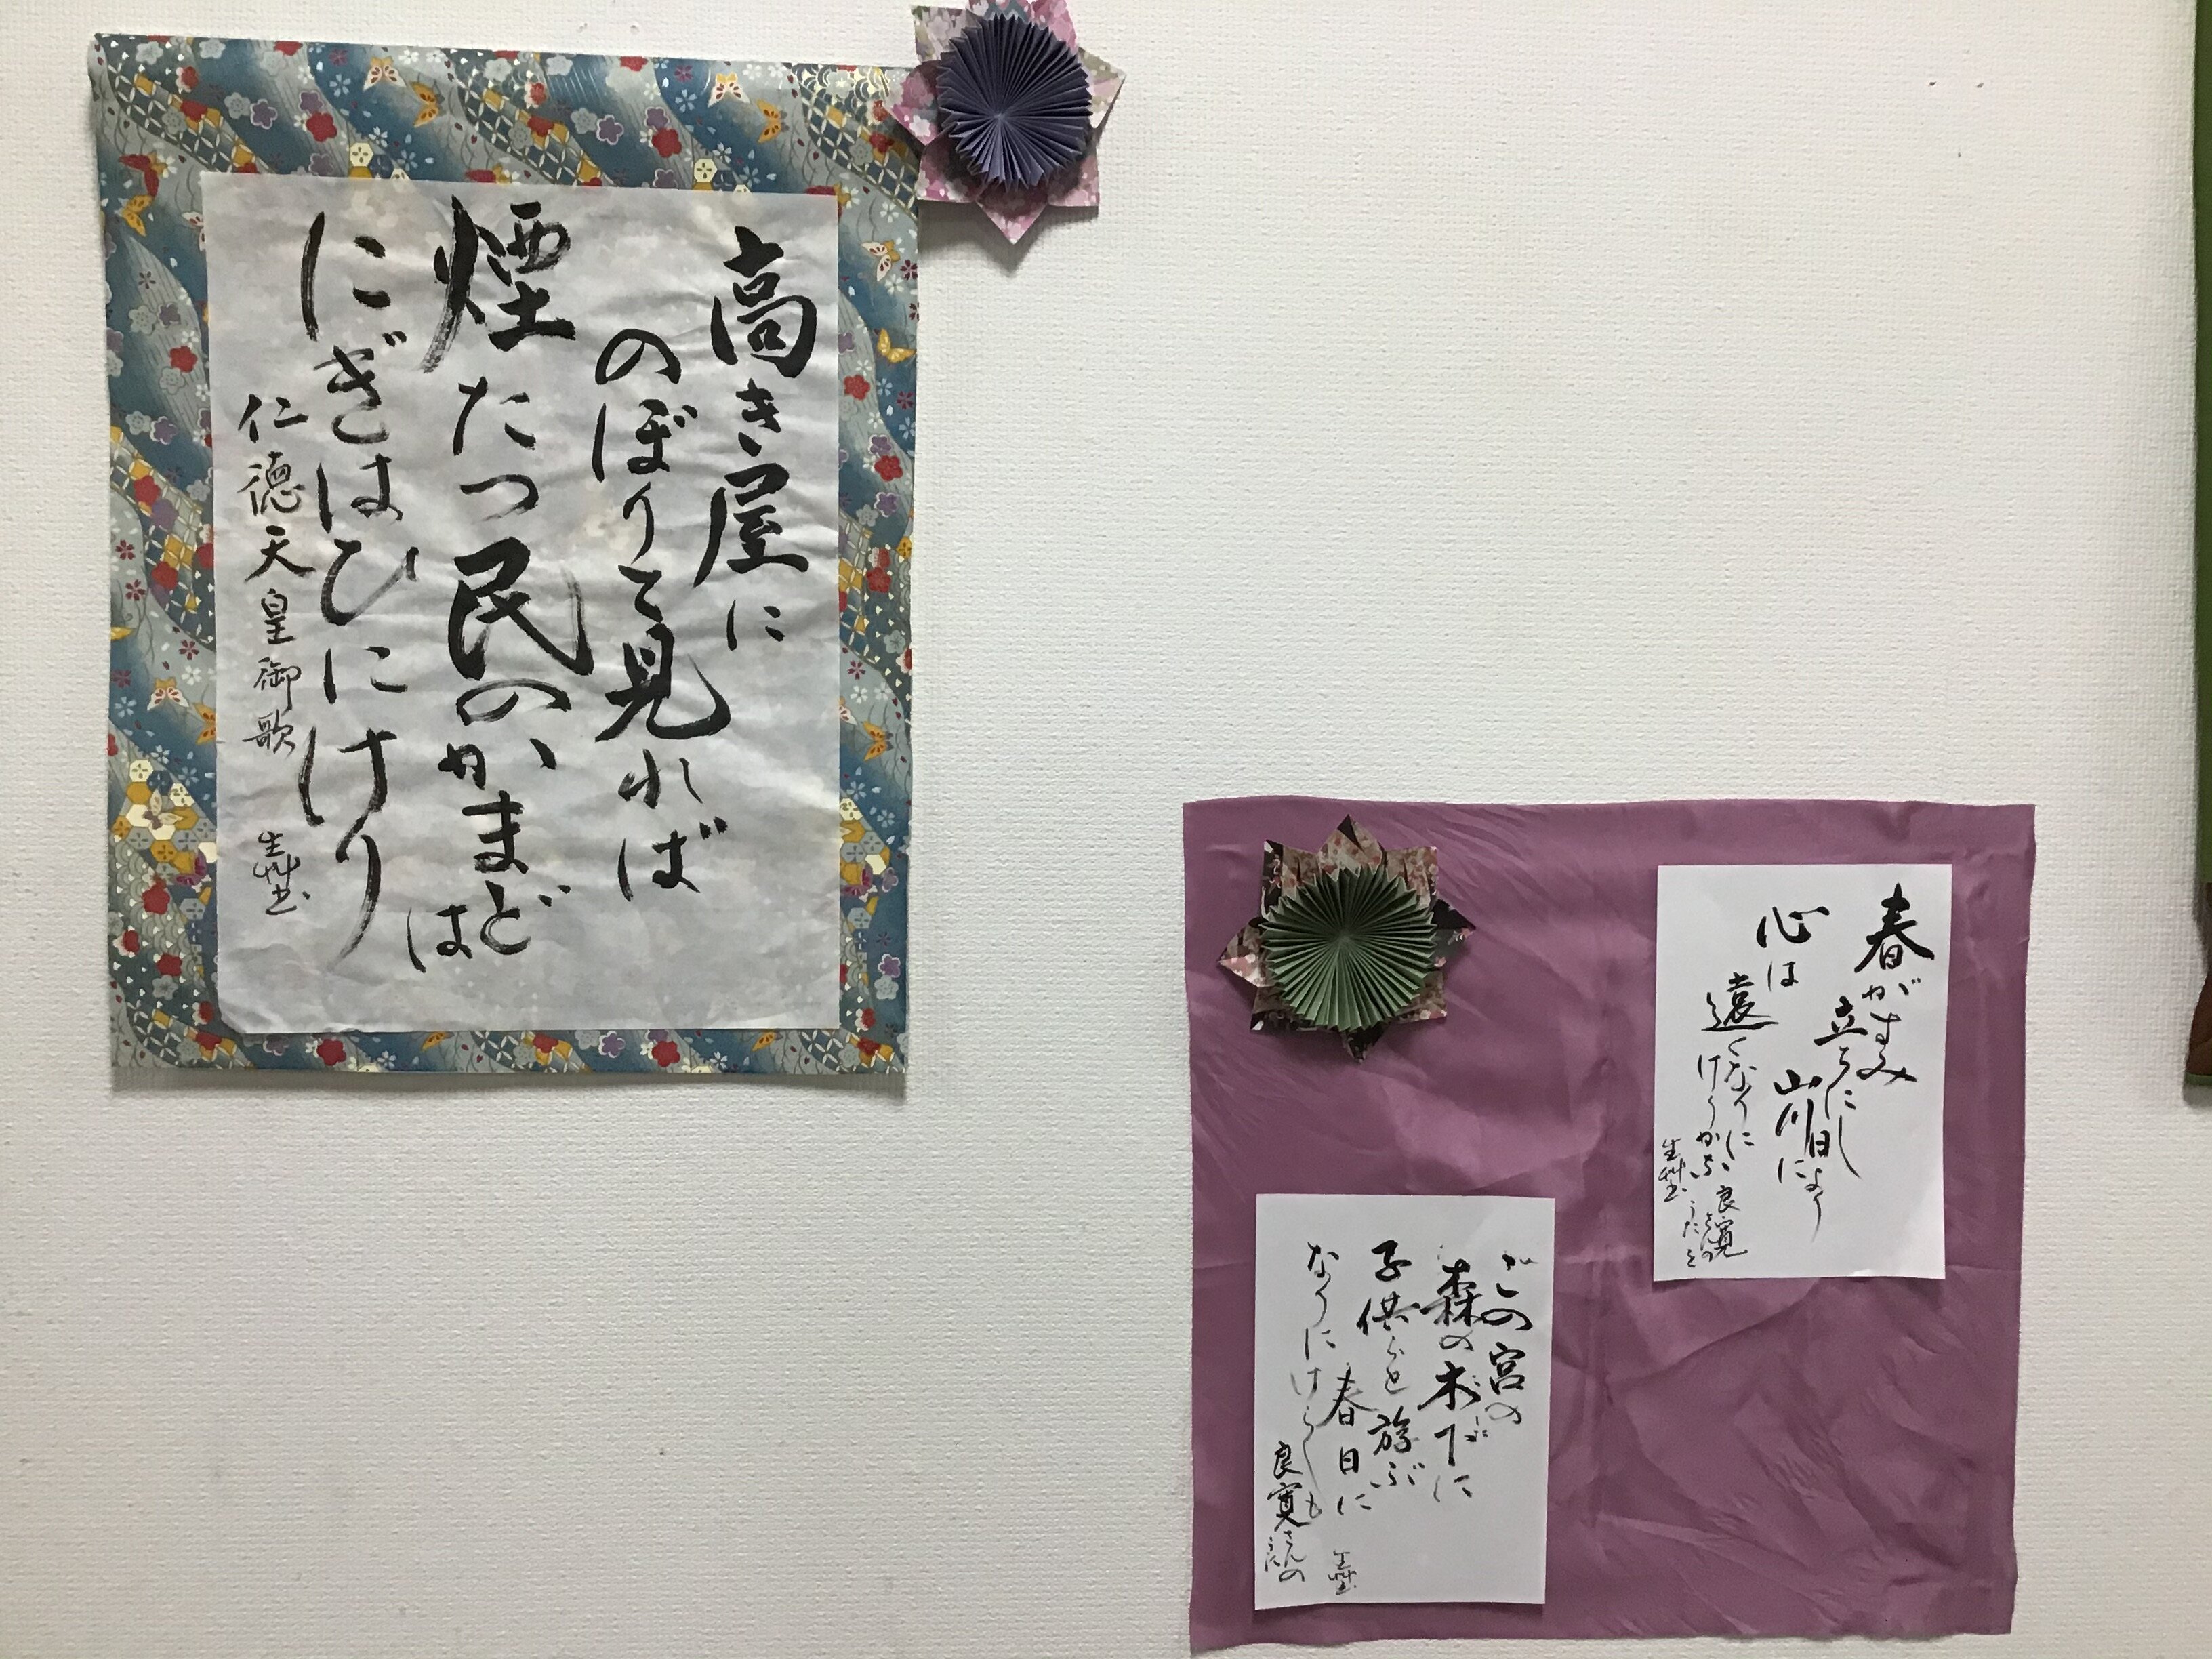 高き屋に
のぼりて見れば
煙たつ民のかまど
は
にぎはひにけり
仁徳天皇御歌
春がすみ
立ちにし
日より
山川に
心は
遠くなりに
けるかな
良寛
さんの
うたを
この宮の
森の木下に
子供らと遊ぶ
春日に
なりにけらしも
良寛さんの
うた